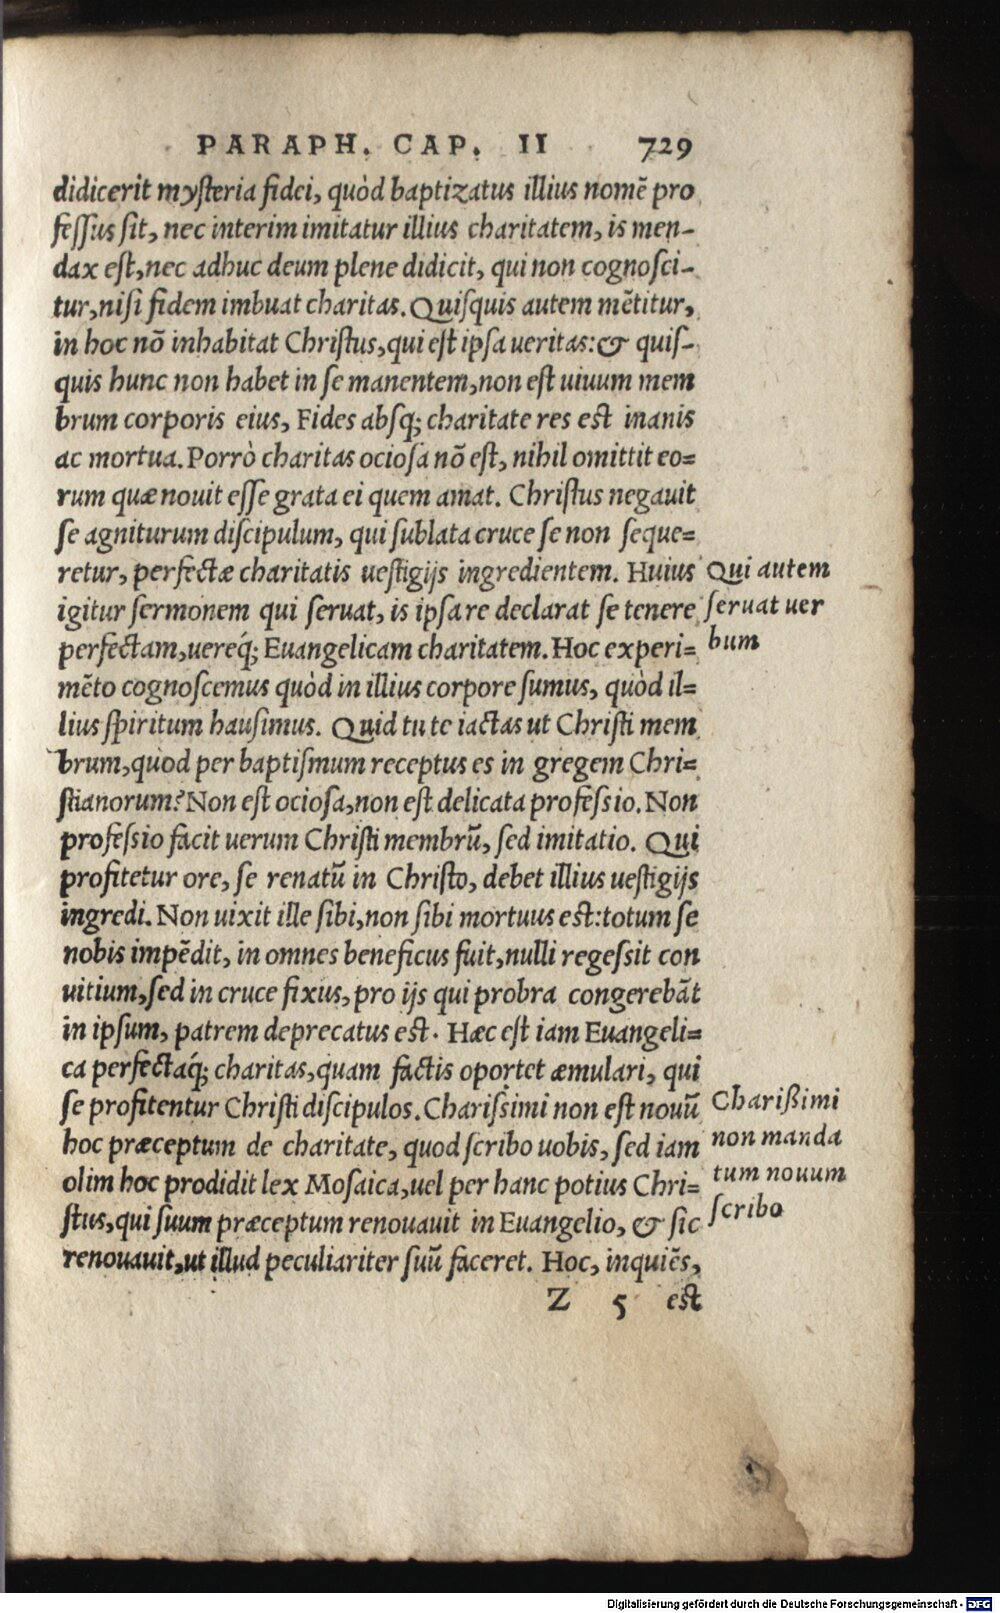 PARAPH. CAP. II 729
didicerit mysteria fidei, quòd baptizatus illius nomē pro
fessus sit, nec interim imitatur illius charitatem, is men-
dax est, nec adhuc deum plene didicit, qui non cognosci-
tur, nisi fidem imbuat charitas. Quisquis autem mētitur,
in hoc nō inhabitat Christus, qui est ipsa ueritas: & quis-
quis hunc non habet in se manentem, non est uiuum mem
brum corporis eius, Fides absq; charitate res est inanis
ac mortua. Porrò charitas ociosa nō est, nihil omittit eo=
rum quæ nouit esse grata ei quem amat. Christus negauit
se agniturum discipulum, qui sublata cruce se non seque=
retur, perfectæ charitatis uestigijs ingredientem. Huius
igitur sermonem qui seruat, is ipsa re declarat se tenere
perfectam, uereq́; Euangelicam charitatem. Hoc experi=
mēto cognoscemus quòd in illius corpore sumus, quòd il=
lius spiritum hausimus. Quid tu te iactas ut Christi mem
brum, quòd per baptismum receptus es in gregem Chri=
stianorum? Non est ociosa, non est delicata professio. Non
professio facit uerum Christi membrū, sed imitatio. Qui
profitetur ore, se renatū in Christo, debet illius uestigijs
ingredi. Non uixit ille sibi, non sibi mortuus est: totum se
nobis impēdit, in omnes beneficus fuit, nulli regessit con
uitium, sed in cruce fixus, pro ijs qui probra congerebāt
in ipsum, patrem deprecatus est. Hæc est iam Euangeli=
ca perfectaq́; charitas, quam factis oportet æmulari, qui
se profitentur Christi discipulos. Charissimi non est nouū
hoc præceptum de charitate, quod scribo uobis, sed iam
olim hoc prodidit lex Mosaica, uel per hanc potius Chri=
stus, qui suum præceptum renouauit in Euangelio, & sic
renouauit, ut illud peculiariter suū faceret. Hoc, inquiēs,
Z 5 est
Qui autem
seruat uer
bum
Charißimi
non manda
tum nouum
scribo
Digitalisierung gefördert durch die Deutsche Forschungsgemeinschaft - DFG